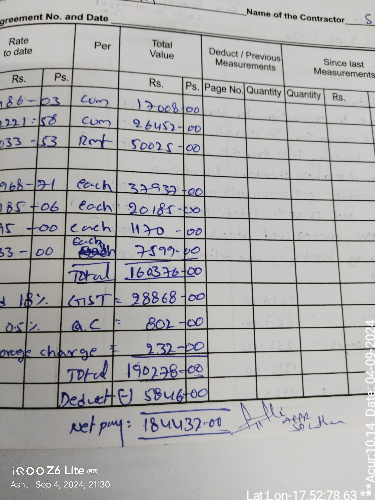 greement No. and Date
Name of the Contractor S
Rate to date Per Total Value Deduct / Previous Measurements Since last Measurements
Rs. Ps. Rs. Ps. Page No. Quantity Quantity Rs.
186-03 cum 17008-00
2221-58 cum 26452-00
033-53 Rmt 50025-00
968-71 each 37937-00
185-06 each 20185-00
75-00 each 1170-00
33-00 each 7599-00
Total 160376-00
18% GST = 28868-00
0.5% Q.C = 802-00
charge = 232-00
Total 190278-00
Deduct (-) 5846-00
Net pay: 184432-00
iQOO Z6 Lite
Ash. Sep 4, 2024, 21:30
Lat Lon-17.52:78.63 **Acur:10.14 Date: 04-09-2024